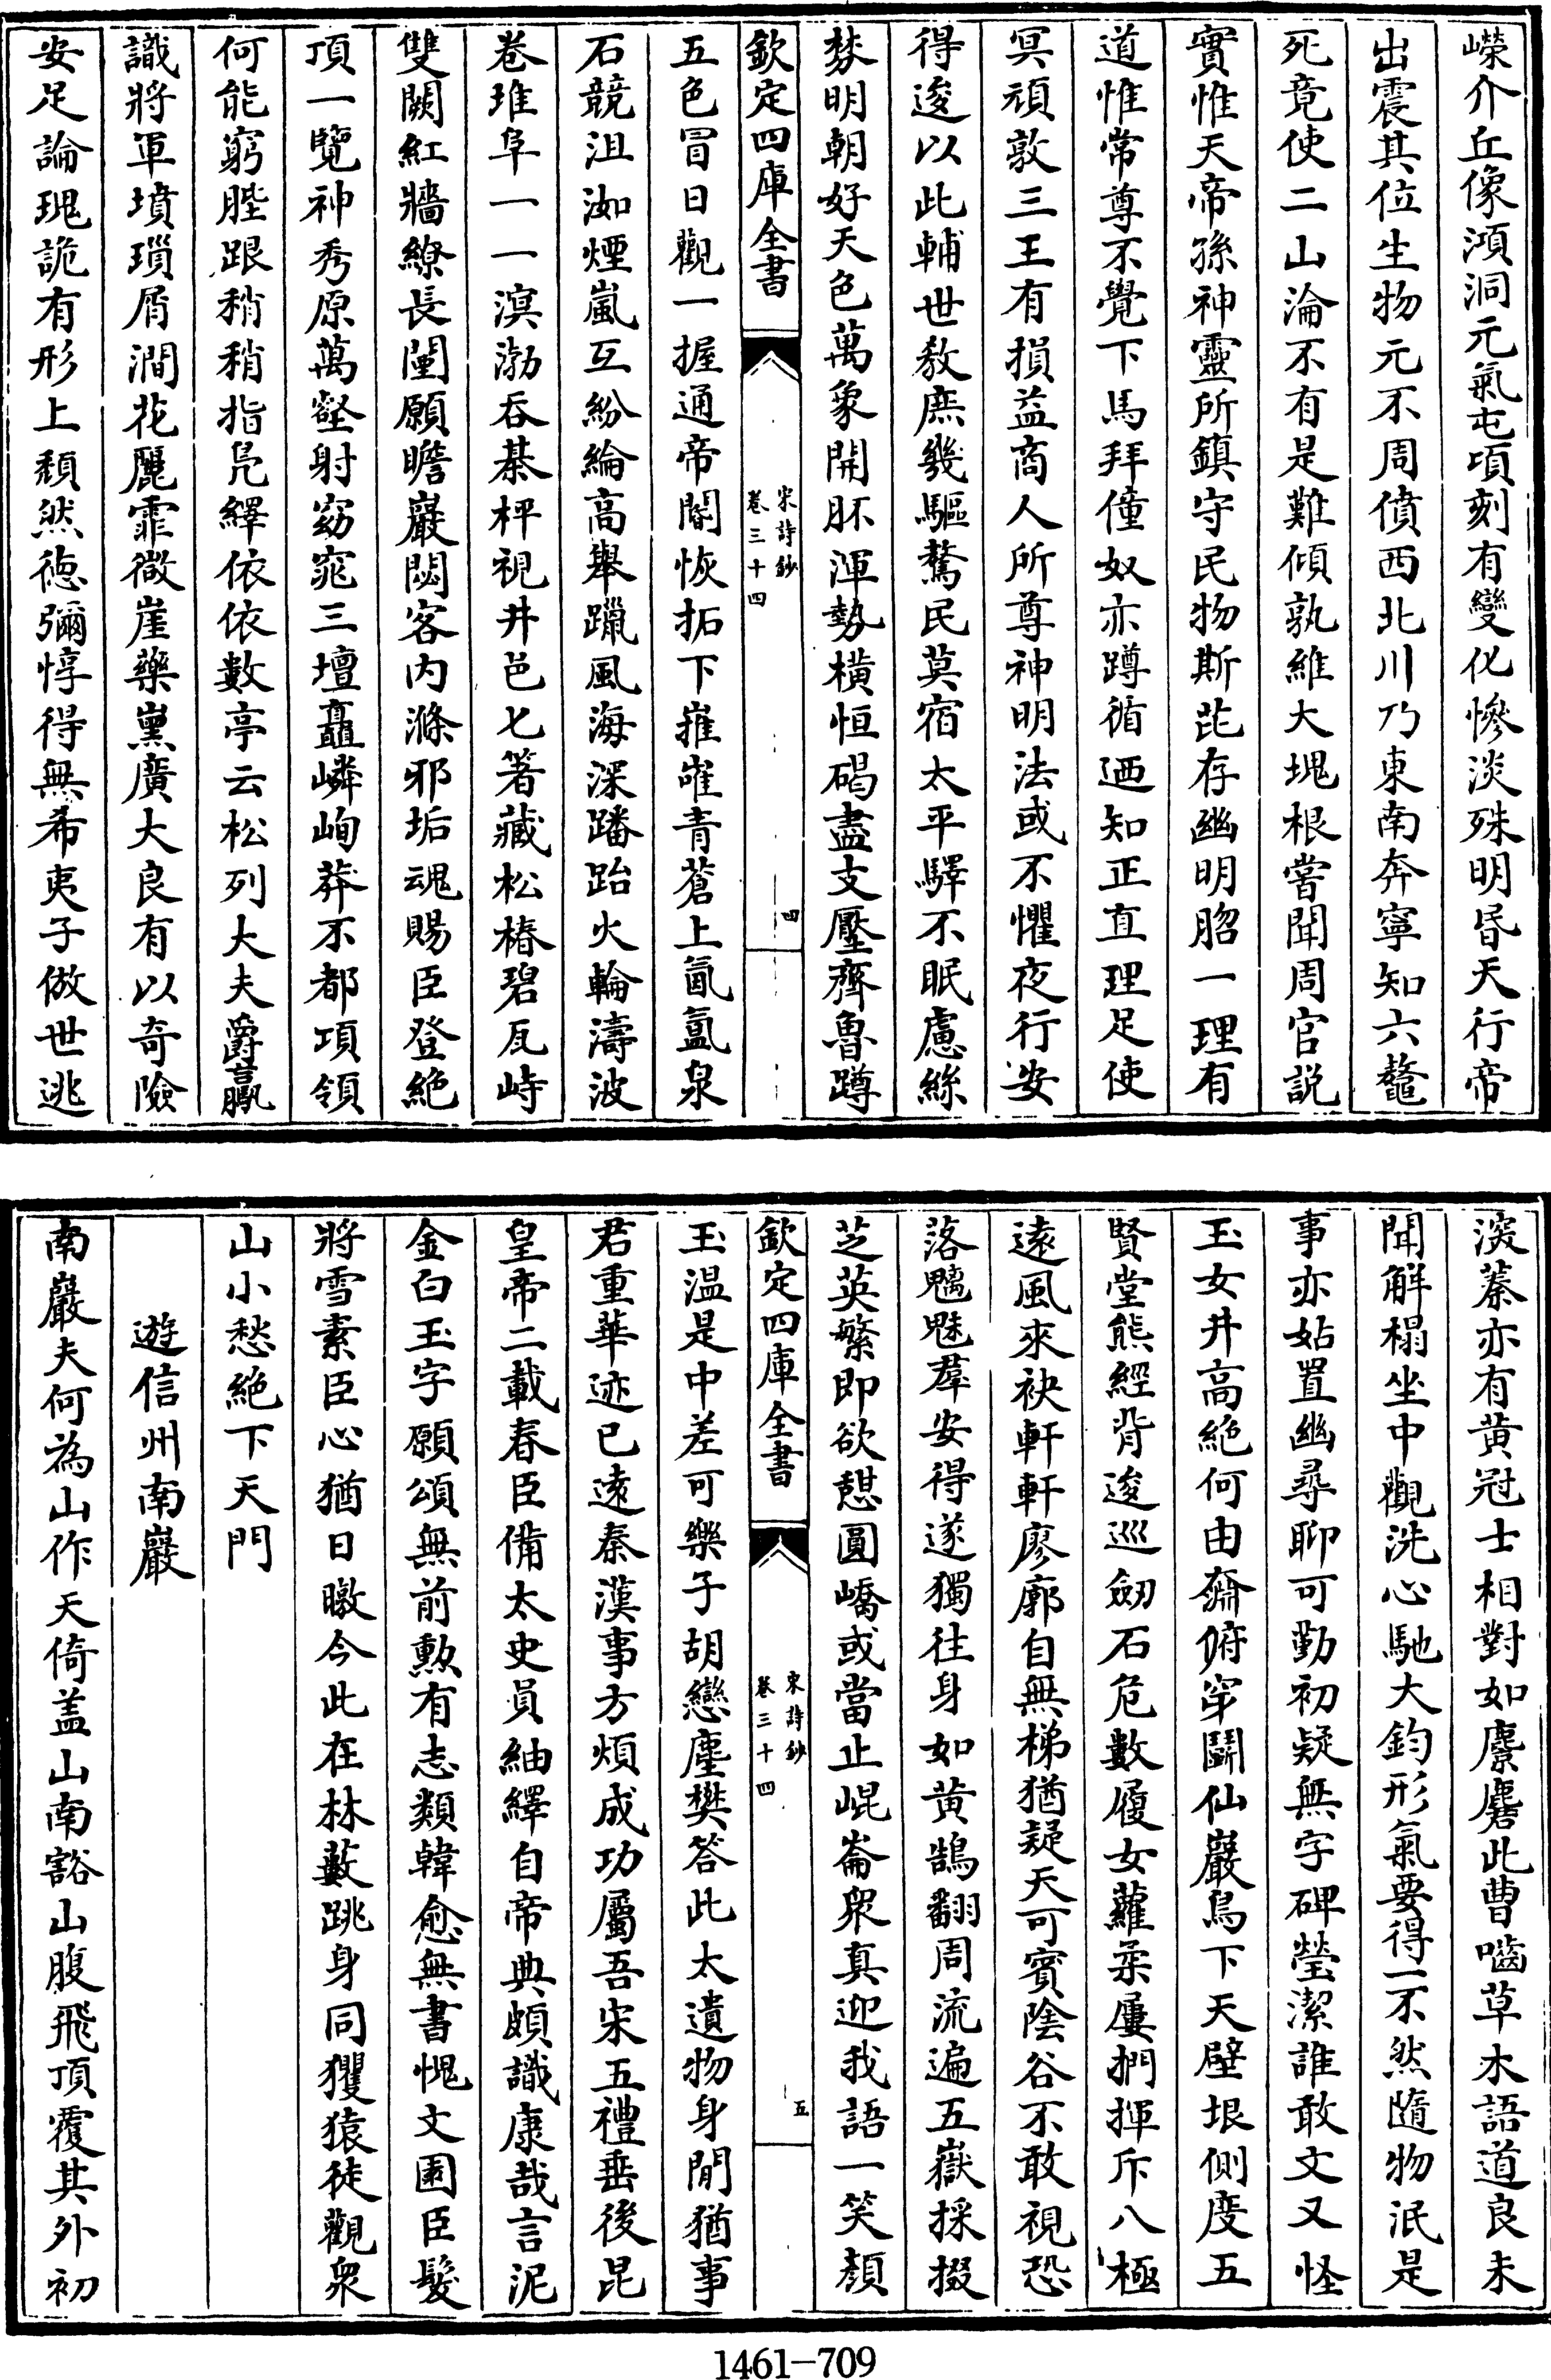 嶸介丘像澒洞元氣屯頃刻有變化慘淡殊明昬天行帝
出震其位生物元不周僨西北川乃東南奔寧知六鼇
死竟使二山淪不有是難傾孰維大塊根嘗聞周官説
實惟天帝孫神靈所鎮守民物斯芘存幽明昭一理有
道惟常尊不覺下馬拜僮奴亦蹲循迺知正直理足使
冥頑敦三王有損益商人所尊神明法或不懼夜行安
得逡以此輔世教庶幾驅騖民莫宿太平驛不眠慮絲
棼明朝好天色萬象開胚渾勢橫恒碣盡支壓齊魯蹲
欽定四庫全書
宋詩鈔
卷三十四
四
五色冒日觀一握通帝閽恢拓下嶊嶉青蒼上氤氳泉
石競沮洳煙嵐互紛綸高舉躐風海深蹯跆火輪濤波
卷堆阜一一溟渤吞棊枰視井邑匕箸藏松椿碧瓦峙
雙闕紅牆繚長闉願瞻巖閟客内滌邪垢魂賜臣登絶
頂一覽神秀原萬壑射窈窕三壇矗嶙峋莽不都項領
何能窮陛跟稍稍指鳧繹依依數亭云松列大夫爵贏
識將軍墳瑣屑澗花麗霏微崖藥薰廣大良有以奇險
安足論瑰詭有形上頽然德彌惇得無希夷子倣世逃
深蓁亦有黄冠士相對如麖麏此曹嚙草木語道良未
聞解榻坐中觀洗心馳大鈞形氣要得一不然隨物泯是
事亦姑置幽尋聊可勤初疑無字碑瑩潔誰敢文又怪
玉女井高絶何由奫俯穿鬭仙巖鳥下天壁垠側度五
賢堂熊經背逡巡劒石危數履女蘿柔屢捫揮斥八極
遠風來袂軒軒廖廓自無梯猶疑天可賓陰谷不敢視恐
落魑魅羣安得遂獨往身如黄鵠翻周流遍五嶽採掇
芝英繁即欲憇圓嶠或當止崐崙衆真迎我語一笑顔
欽定四庫全書
宋詩鈔
卷三十四
五
玉温是中差可樂子胡戀塵樊答此太遺物身閒猶事
君重華迹已遠秦漢事方煩成功屬吾宋五禮垂後昆
皇帝二載春臣備太史員紬繹自帝典頗識康哉言泥
金白玉字願頌無前勲有志類韓愈無書愧文園臣髮
將雪素臣心猶日暾今此在林藪跳身同玃猿徒觀衆
山小愁絶下天門
遊信州南巖
南巖夫何為山作天倚盖山南豁山腹飛頂覆其外初
1461-709